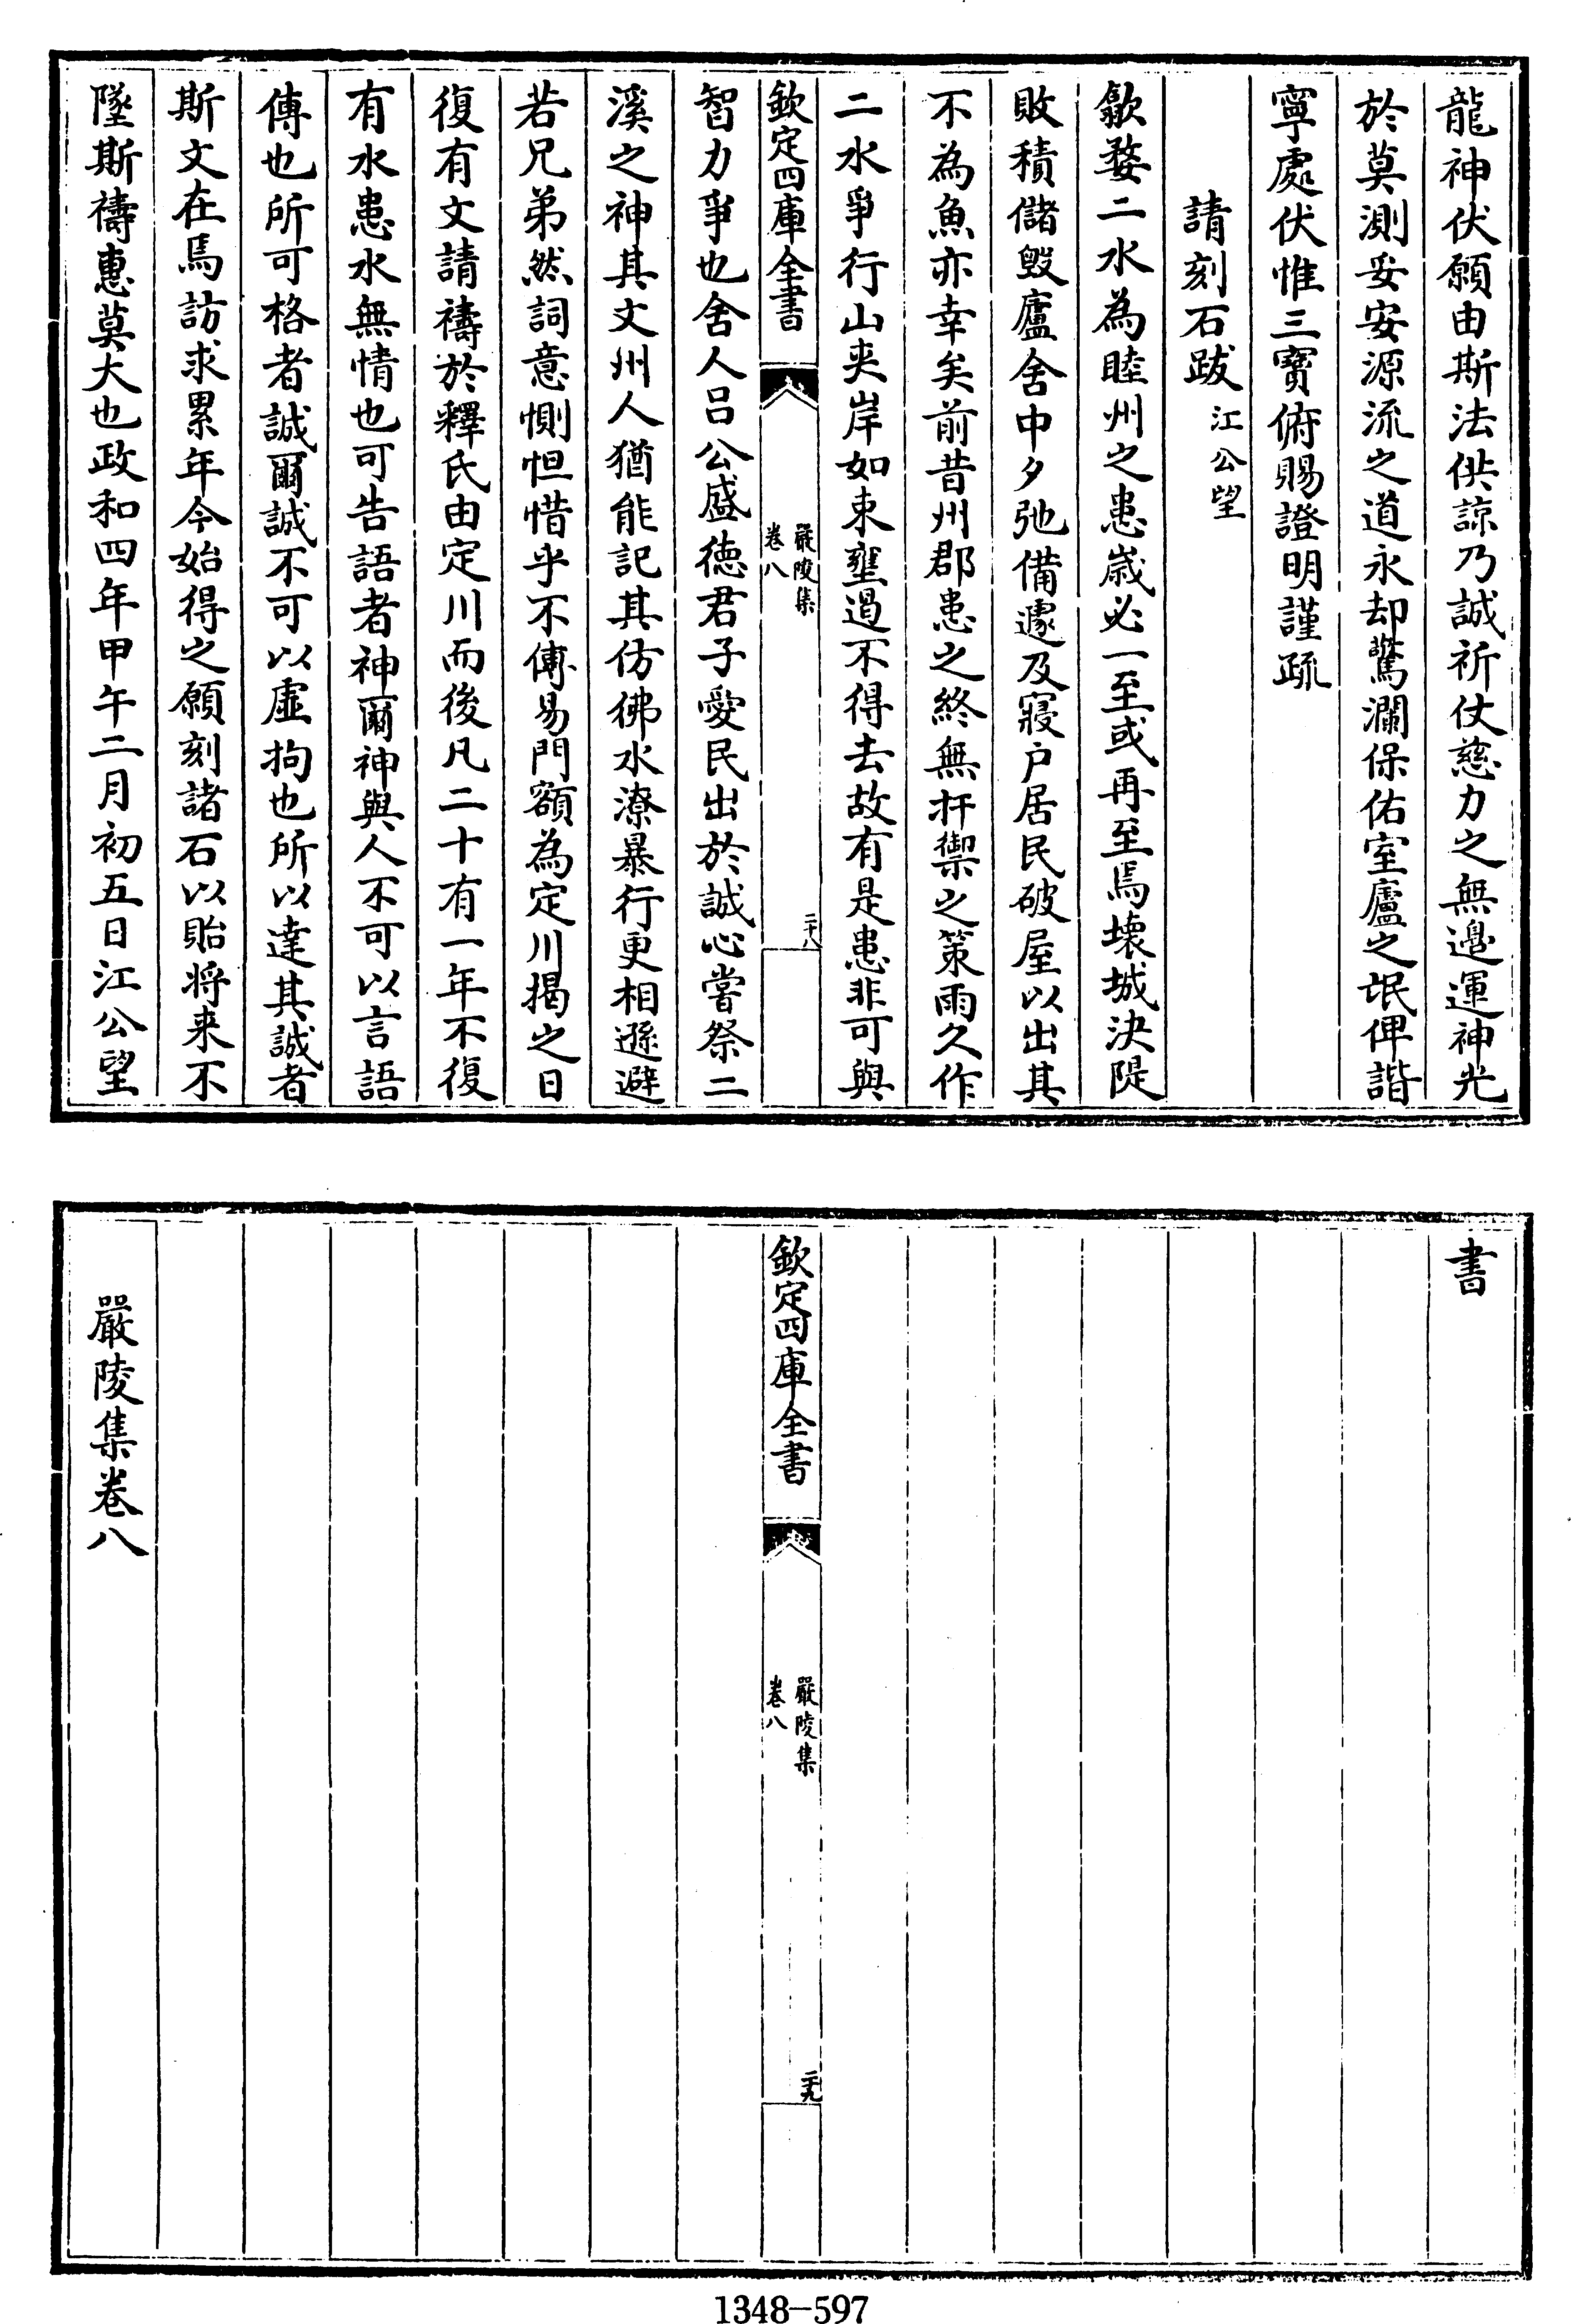 龍神伏願由斯法供諒乃誠祈仗慈力之無邊運神光
於莫測妥安源流之道永却驚瀾保佑室廬之氓俾諧
寧處伏惟三寶俯賜證明謹疏
請刻石跋 江公望
歙婺二水為睦州之患歲必一至或再至焉壞城決隄
敗積儲毁廬舍中夕弛備遽及寢户居民破屋以出其
不為魚亦幸矣前昔州郡患之終無扞禦之策雨久作
二水爭行山夾岸如束壅遏不得去故有是患非可與
欽定四庫全書
嚴陵集
卷八
二十八
智力爭也舍人吕公盛德君子愛民出於誠心嘗祭二
溪之神其文州人猶能記其仿彿水潦暴行更相遜避
若兄弟然詞意惻怛惜乎不傳易門額為定川揭之日
復有文請禱於釋氏由定川而後凡二十有一年不復
有水患水無情也可告語者神爾神與人不可以言語
傳也所可格者誠爾誠不可以虚拘也所以達其誠者
斯文在焉訪求累年今始得之願刻諸石以貽將来不
墜斯禱惠莫大也政和四年甲午二月初五日江公望
書
欽定四庫全書
嚴陵集
卷八
二十九
嚴陵集卷八
1348-597